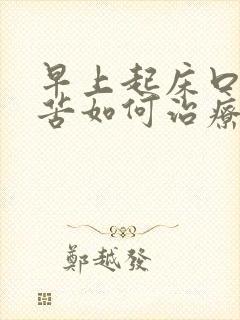 早上起床口
苦如何治療
鄭越發